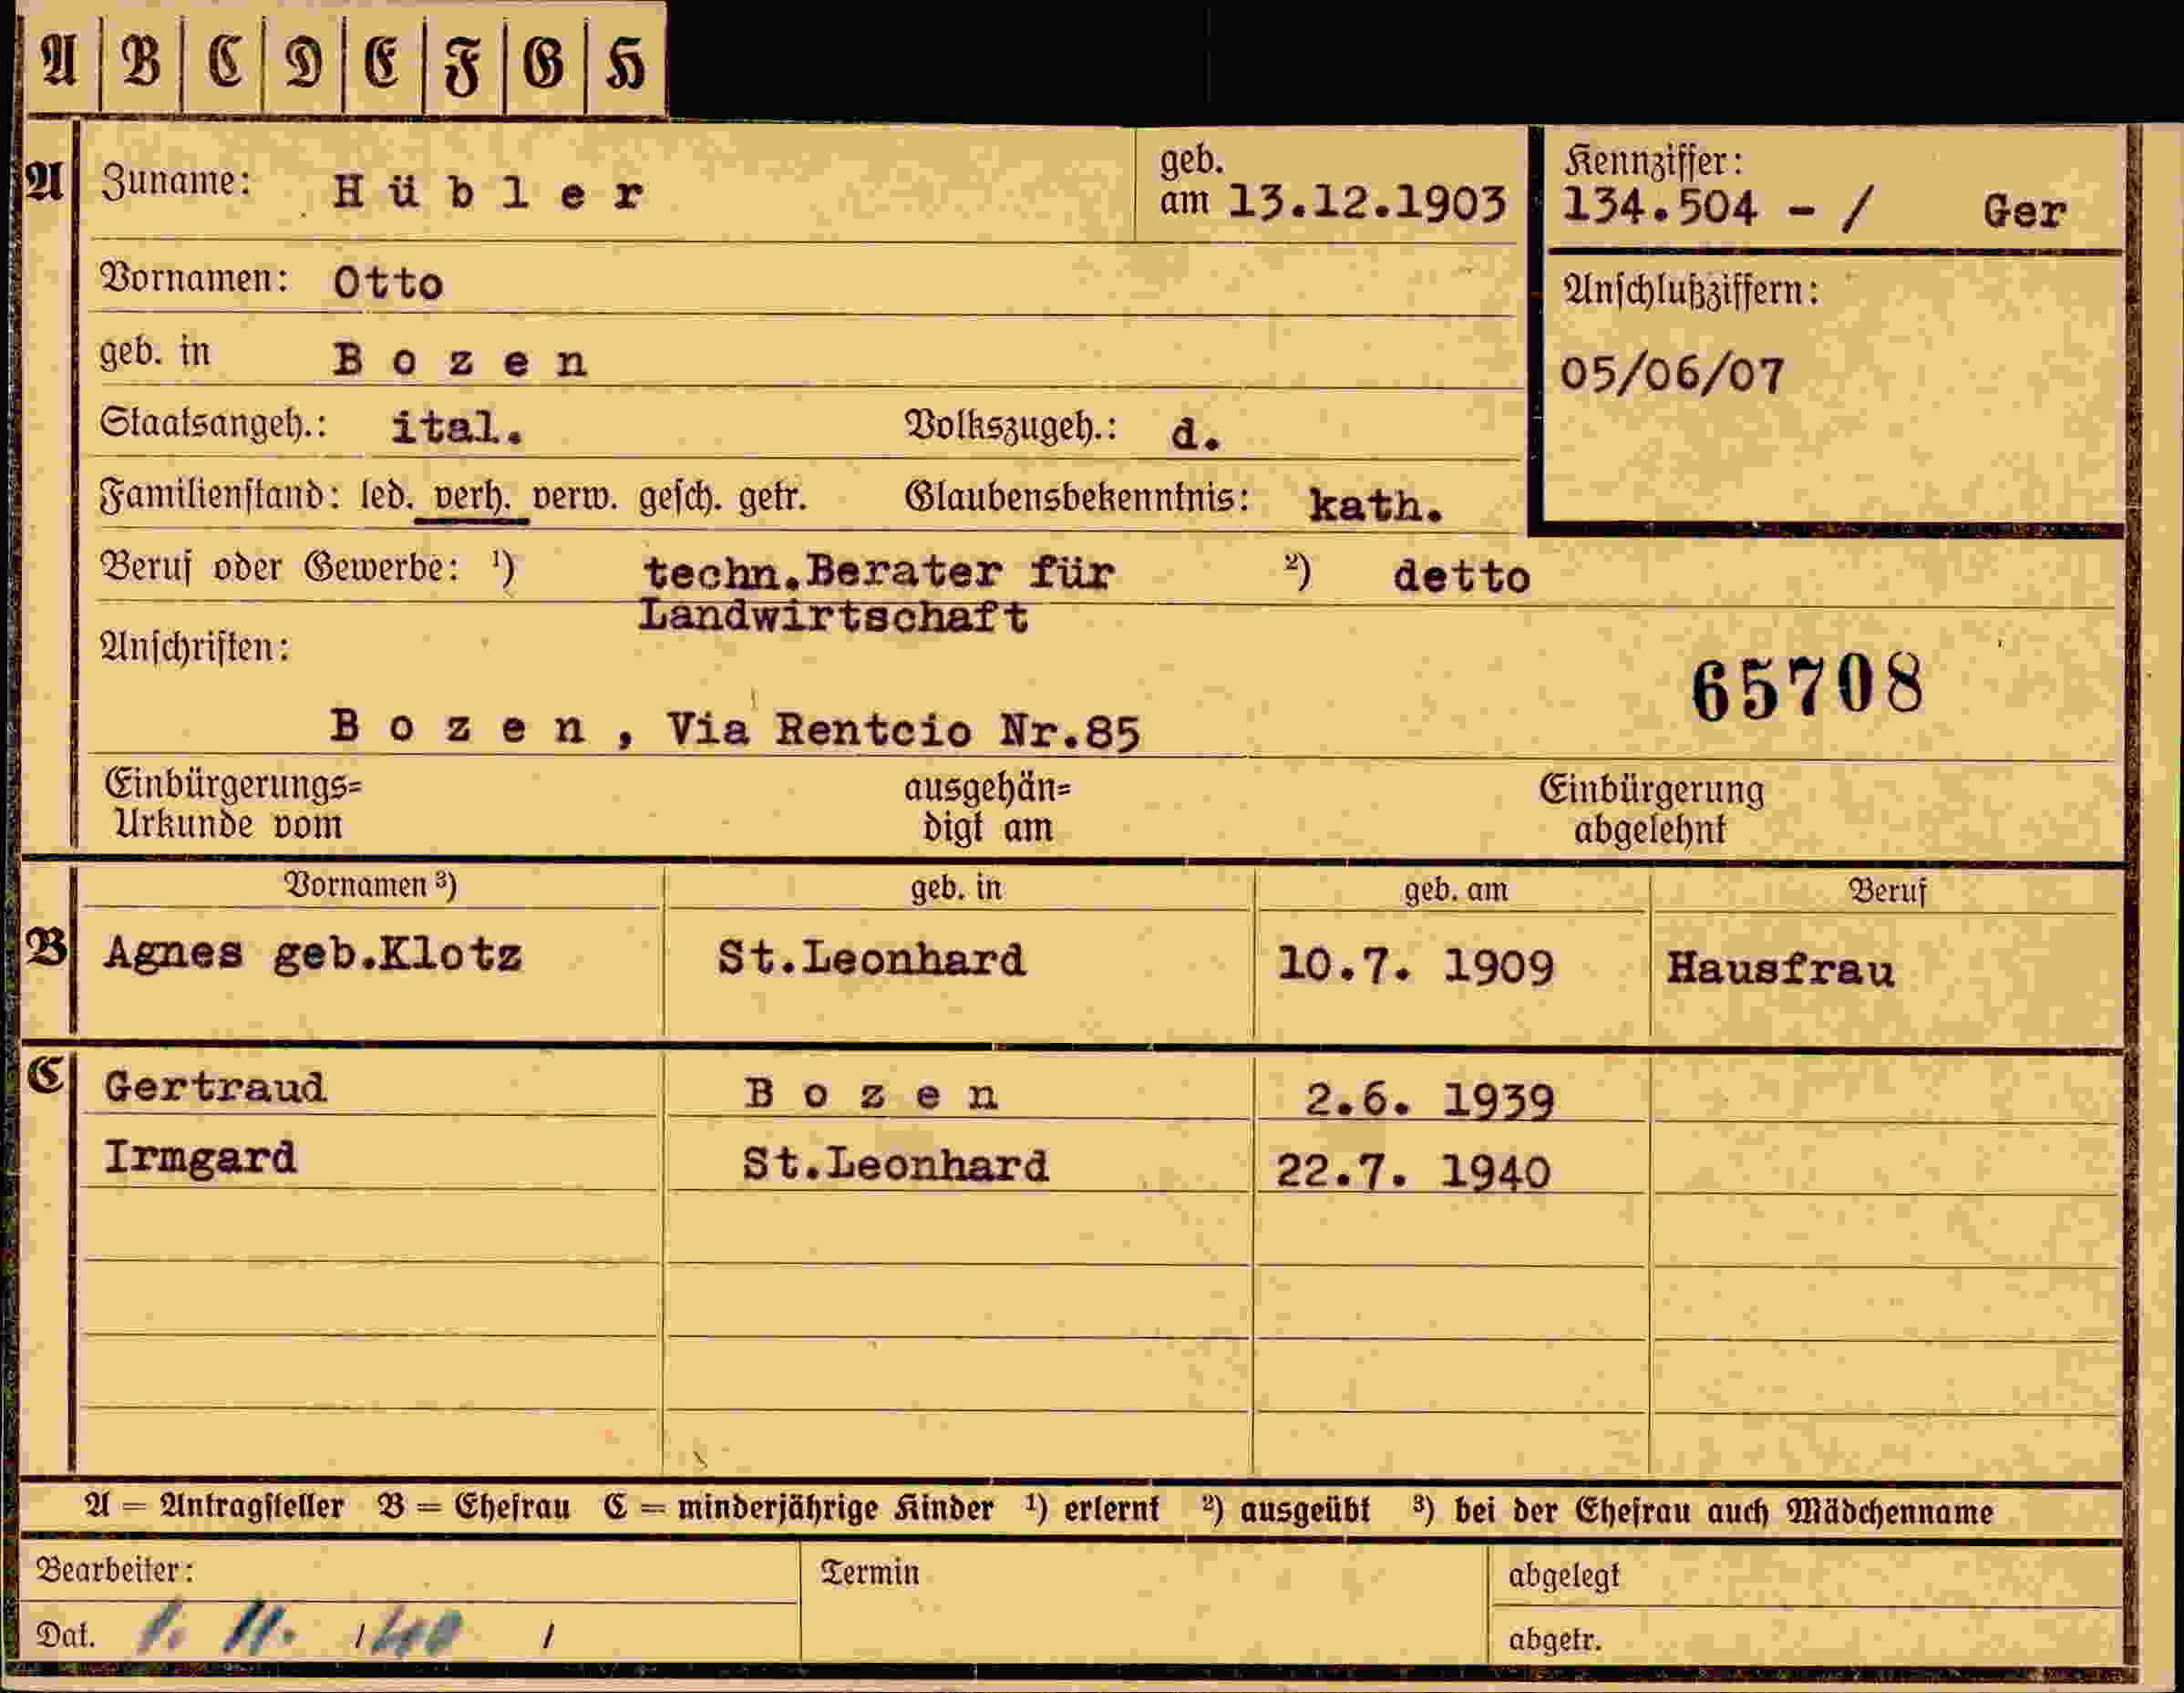 A B C D E F G H
A Zuname: Hübler geb. am 13.12.1903 Kennziffer: 134.504 - / Ger
Vornamen: Otto Anschlußziffern:
geb. in Bozen 05/06/07
Staatsangeh.: ital. Volkszugeh.: d.
Familienstand: led. verh. verw. gesch. getr. Glaubensbekenntnis: kath.
Beruf oder Gewerbe: ¹) techn.Berater für ²) detto
Landwirtschaft
Anschriften:
65708
Bozen, Via Rentcio Nr.85
Einbürgerungs= ausgehän= Einbürgerung
Urkunde vom digt am abgelehnt
Vornamen ³) geb. in geb. am Beruf
B Agnes geb.Klotz St.Leonhard 10.7. 1909 Hausfrau
C Gertraud Bozen 2.6. 1939
Irmgard St.Leonhard 22.7. 1940
A = Antragsteller B = Ehefrau C = minderjährige Kinder ¹) erlernt ²) ausgeübt ³) bei der Ehefrau auch Mädchenname
Bearbeiter: Termin abgelegt
Dat. 1. 11. /40 / abgetr.